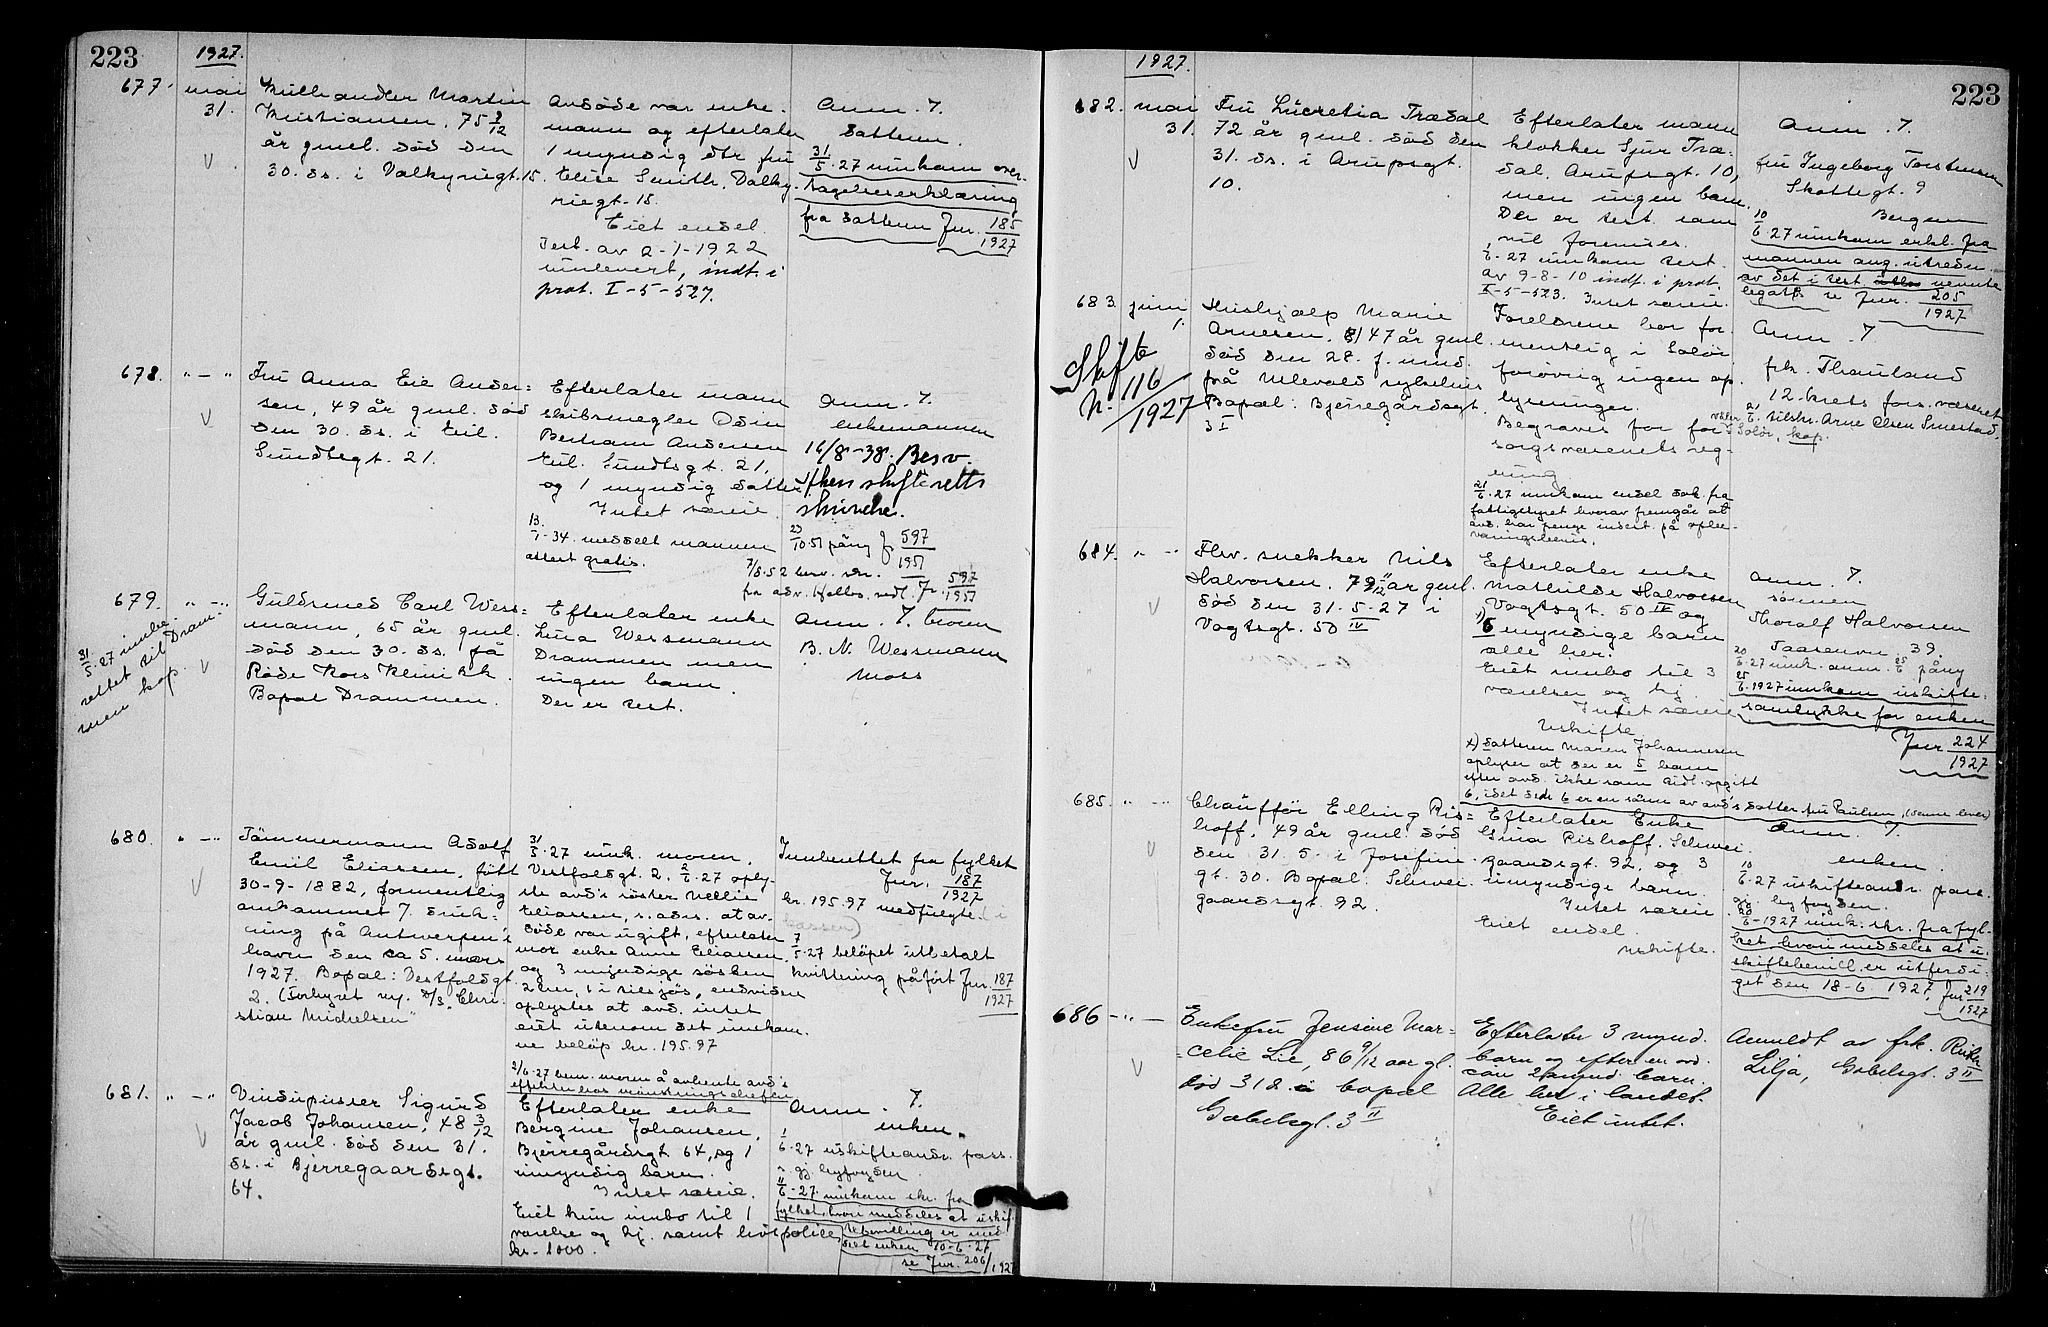 223
1927.
677. mai
31.
Martin
Kristiansen, 75 9/12
år gml. død den
30. ds. i Valkyriegt. 15.
Avdøde var enke-
mann og efterlater
1 myndig dtr. fru
Elise Smith, Valky-
riegt. 15.
Eiet endel.
Test. av 2-1-1922
innlevert, indf. i
prot. I-5-527.
Anm. 7.
datteren.
31/5.27 innkom over-
tagelseserklæring
fra datteren Jnr. 185/1927
678. " — "
Fru Anna Eie Ander-
sen, 49 år gml. død
den 30. ds. i Eil.
Sundtsgt. 21.
Efterlater mann
skibsmegler Odin
Bertram Andersen
Eil. Sundtsgt. 21,
og 1 myndig datter.
Intet særeie.
13/1-34. meddelt mannen
attest gratis.
Anm. 7.
enkemannen
16/8-38. Besv.
skifteretts
skrivelse.
23/10.51 påny J. 597/1951
7/5.52 besv. skr.
fra adv. vedl. Jr. 597/1951
679. " — "
31/5.27 innbe-
rettet til Dram-
men kop.
Guldsmed Carl Wess-
mann, 65 år gml.
død den 30. ds. på
Røde Kors Klinikk.
Bopæl Drammen.
Efterlater enke
Lina Wessmann
Drammen men
ingen barn.
Der er test.
Anm. 7. broren
B. N. Wessmann
Moss
680. " — "
Tømmermann Adolf
Emil Eliassen, født
30-9-1882, formentlig
omkommet 7. druk-
ning på Antwerpen's
havn den ca 5. mars
1927. Bopæl: Vestfoldgt.
2. (Forhyret m/s "Chri-
stian Michelsen"
31/5.27 innk. moren,
Vestfoldgt. 2. 2/6.27 oply-
ste avd's søster Nellie
Eliassen, s. adr. at av-
døde var ugift, efterlater
mor enke Anne Eliassen,
og 3 myndige søsken
2 her, 1 i tilsjøs, endvidere
oplystes at avd. intet
eiet utenom det innkom-
ne beløp kr. 195.97
2/6.27 bem. moren å avhente avd's
effekter hos mønstringschefen
Innberettet fra fylket
Jnr. 187/1927
kr. 195.97 medfulgte (i
kassen)
7/5.27 beløpet utbetalt
kvittering påført Jnr. 187/1927
681. " — "
Vinduspusser Sigurd
Jacob Johansen, 48 3/12
år gml. død den 31.
ds. i Bjerregaardsgt.
64.
Efterlater enke
Bergine Johansen,
Bjerregårdsgt 64, og 1
umyndig barn.
Intet særeie.
Eiet kun innbo til 1
værelse og kj. samt livspolice
kr. 1000.
Anm. 7.
enken.
1/6.27 uskifteandr. pass.
s. gj. byfogden.
11/6.27 innkom skr. fra
fylket, hvori meddeles at uskif-
tebevilling er med-
delt enken 10-6-27
se Jnr. 206/1927
223
1927.
682. mai
31.
Fru Lucretia Trædal
72 år gml. død den
31. ds. i Arupsgt.
10.
Efterlater mann
klokker Sjur Træ-
dal. Arupsgt. 10,
men ingen barn.
Der er test. som
vil forevises.
1/6-27 innkom test.
av 9-8-10 indf. i prot.
I-5-523. Intet særeie.
Anm. 7.
fru Ingeborg Torstensen
Skottegt. 9
Bergen
10/6.27 innkom erkl. fra
mannen ang. utredn.
av det i test. nevnte
legat se Jnr. 205/1927
683. juni
1.
Skifte
N. 116/1927
Hushjælp Marie
Arnesen, 47 år gml.
død den 28. f. mnd.
på Ullevold sykehus
Bopæl: Bjerregårdsgt.
3 I
Foreldrene bor for-
mentlig i Solør
forøvrig ingen op-
lysninger.
Begraves for for-
sorgsvæsenets reg-
ning
21/6.27 innkom endel dok. fra
fattigstyret hvorav fremgår at
avd. har penge indest. på oplæ-
varingsbevis.
Anm. 7
frk. Thauland
12. krets fors. væsenet
2/6. tilskr. Arne Olsen Smestad.
Solør, kop.
684. " — "
Fhv. snekker Nils
Halvorsen. 79 11/12 år gml.
død den 31.5.27 i
Vogtsgt. 50 IV
Efterlater enke
Mathilde Halvorsen
Vogtsgt. 50 IV og
x) 6 myndige barn
alle her.
Eiet innbo til 3
værelser og kj.
Intet særeie
Uskifte
x) Datteren Maren Johannesen
oplyser at der er 5 barn
efter avd. ikke som tidl. opgitt
6, idet den 6. er en sønn av avd's datter fru Paulsen, (som lever)
Anm. 7.
sønnen
Thoralf Halvorsen
Taasenvn. 39.
20/6.27 innk. anm. 25/6 påny
25/6.1927 innkom uskifte-
samtykke for enken
Jnr 224/1927
685. " — "
Chauffør Elling Ris-
hoff, 49 år gml. død
den 31. 5. i Josefine-
gt. 30. Bopæl: Schwei-
gaardsgt. 92.
Efterlater Enke
Gina Rishoff. Schwei-
gaardsgt. 92, og 3
umyndige barn.
Intet særeie
Eiet endel.
Uskifte.
Anm. 7.
enken.
10/6.27 uskifteandr. pass.
gj. byfogden.
20/6-1927 innk. skr. fra fyl-
ket hvori meddeles at u-
skiftebevill. er utferdi-
get den 18-6 1927, Jnr 219/1927
686 — " —
Enkefru Jensine Mar-
celie Lie, 86 9/12 aar gl.
død 31 ds. bopæl
Gabelsgt. 3 II
Efterlater 3 mynd.
barn og efter en avd.
søn 2 mynd. barn.
Alle her i landet.
Eiet intet.
Anmeldt av frk.
Lilja, Gabelsgt. 3 II